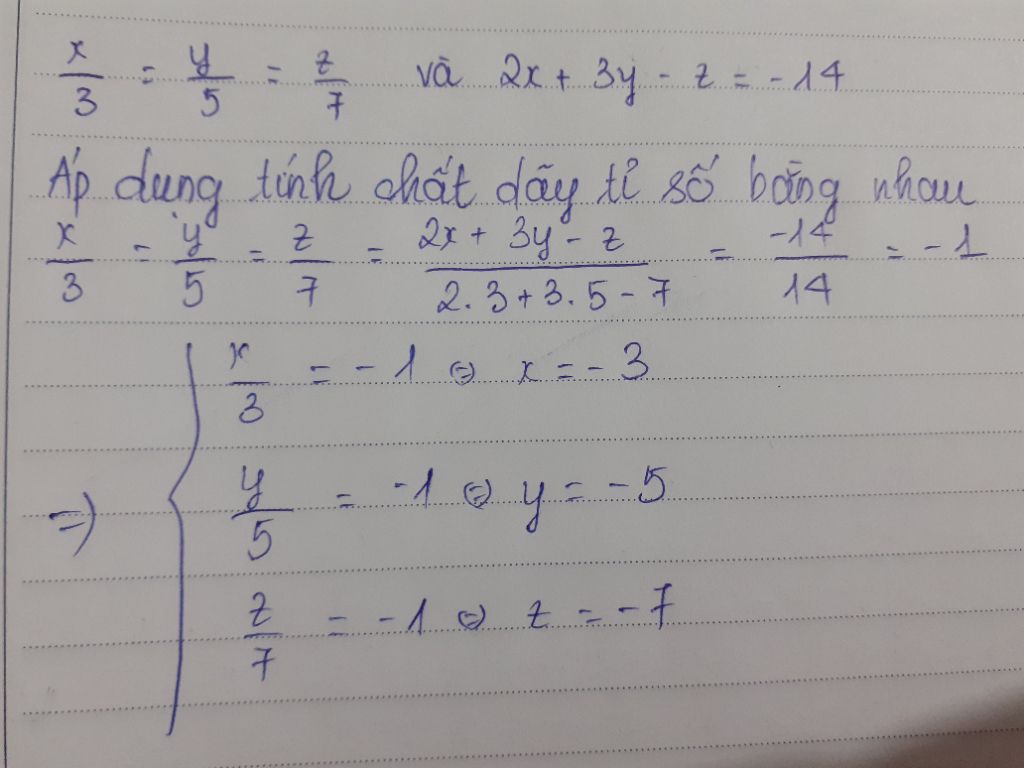 x/3 = y/5 = z/7 và 2x + 3y - z = -14
Áp dụng tính chất dãy tỉ số bằng nhau
x/3 = y/5 = z/7 = (2x + 3y - z)/(2.3 + 3.5 - 7) = -14/14 = -1
x/3 = -1 ⇔ x = -3
⇒ y/5 = -1 ⇔ y = -5
z/7 = -1 ⇔ z = -7